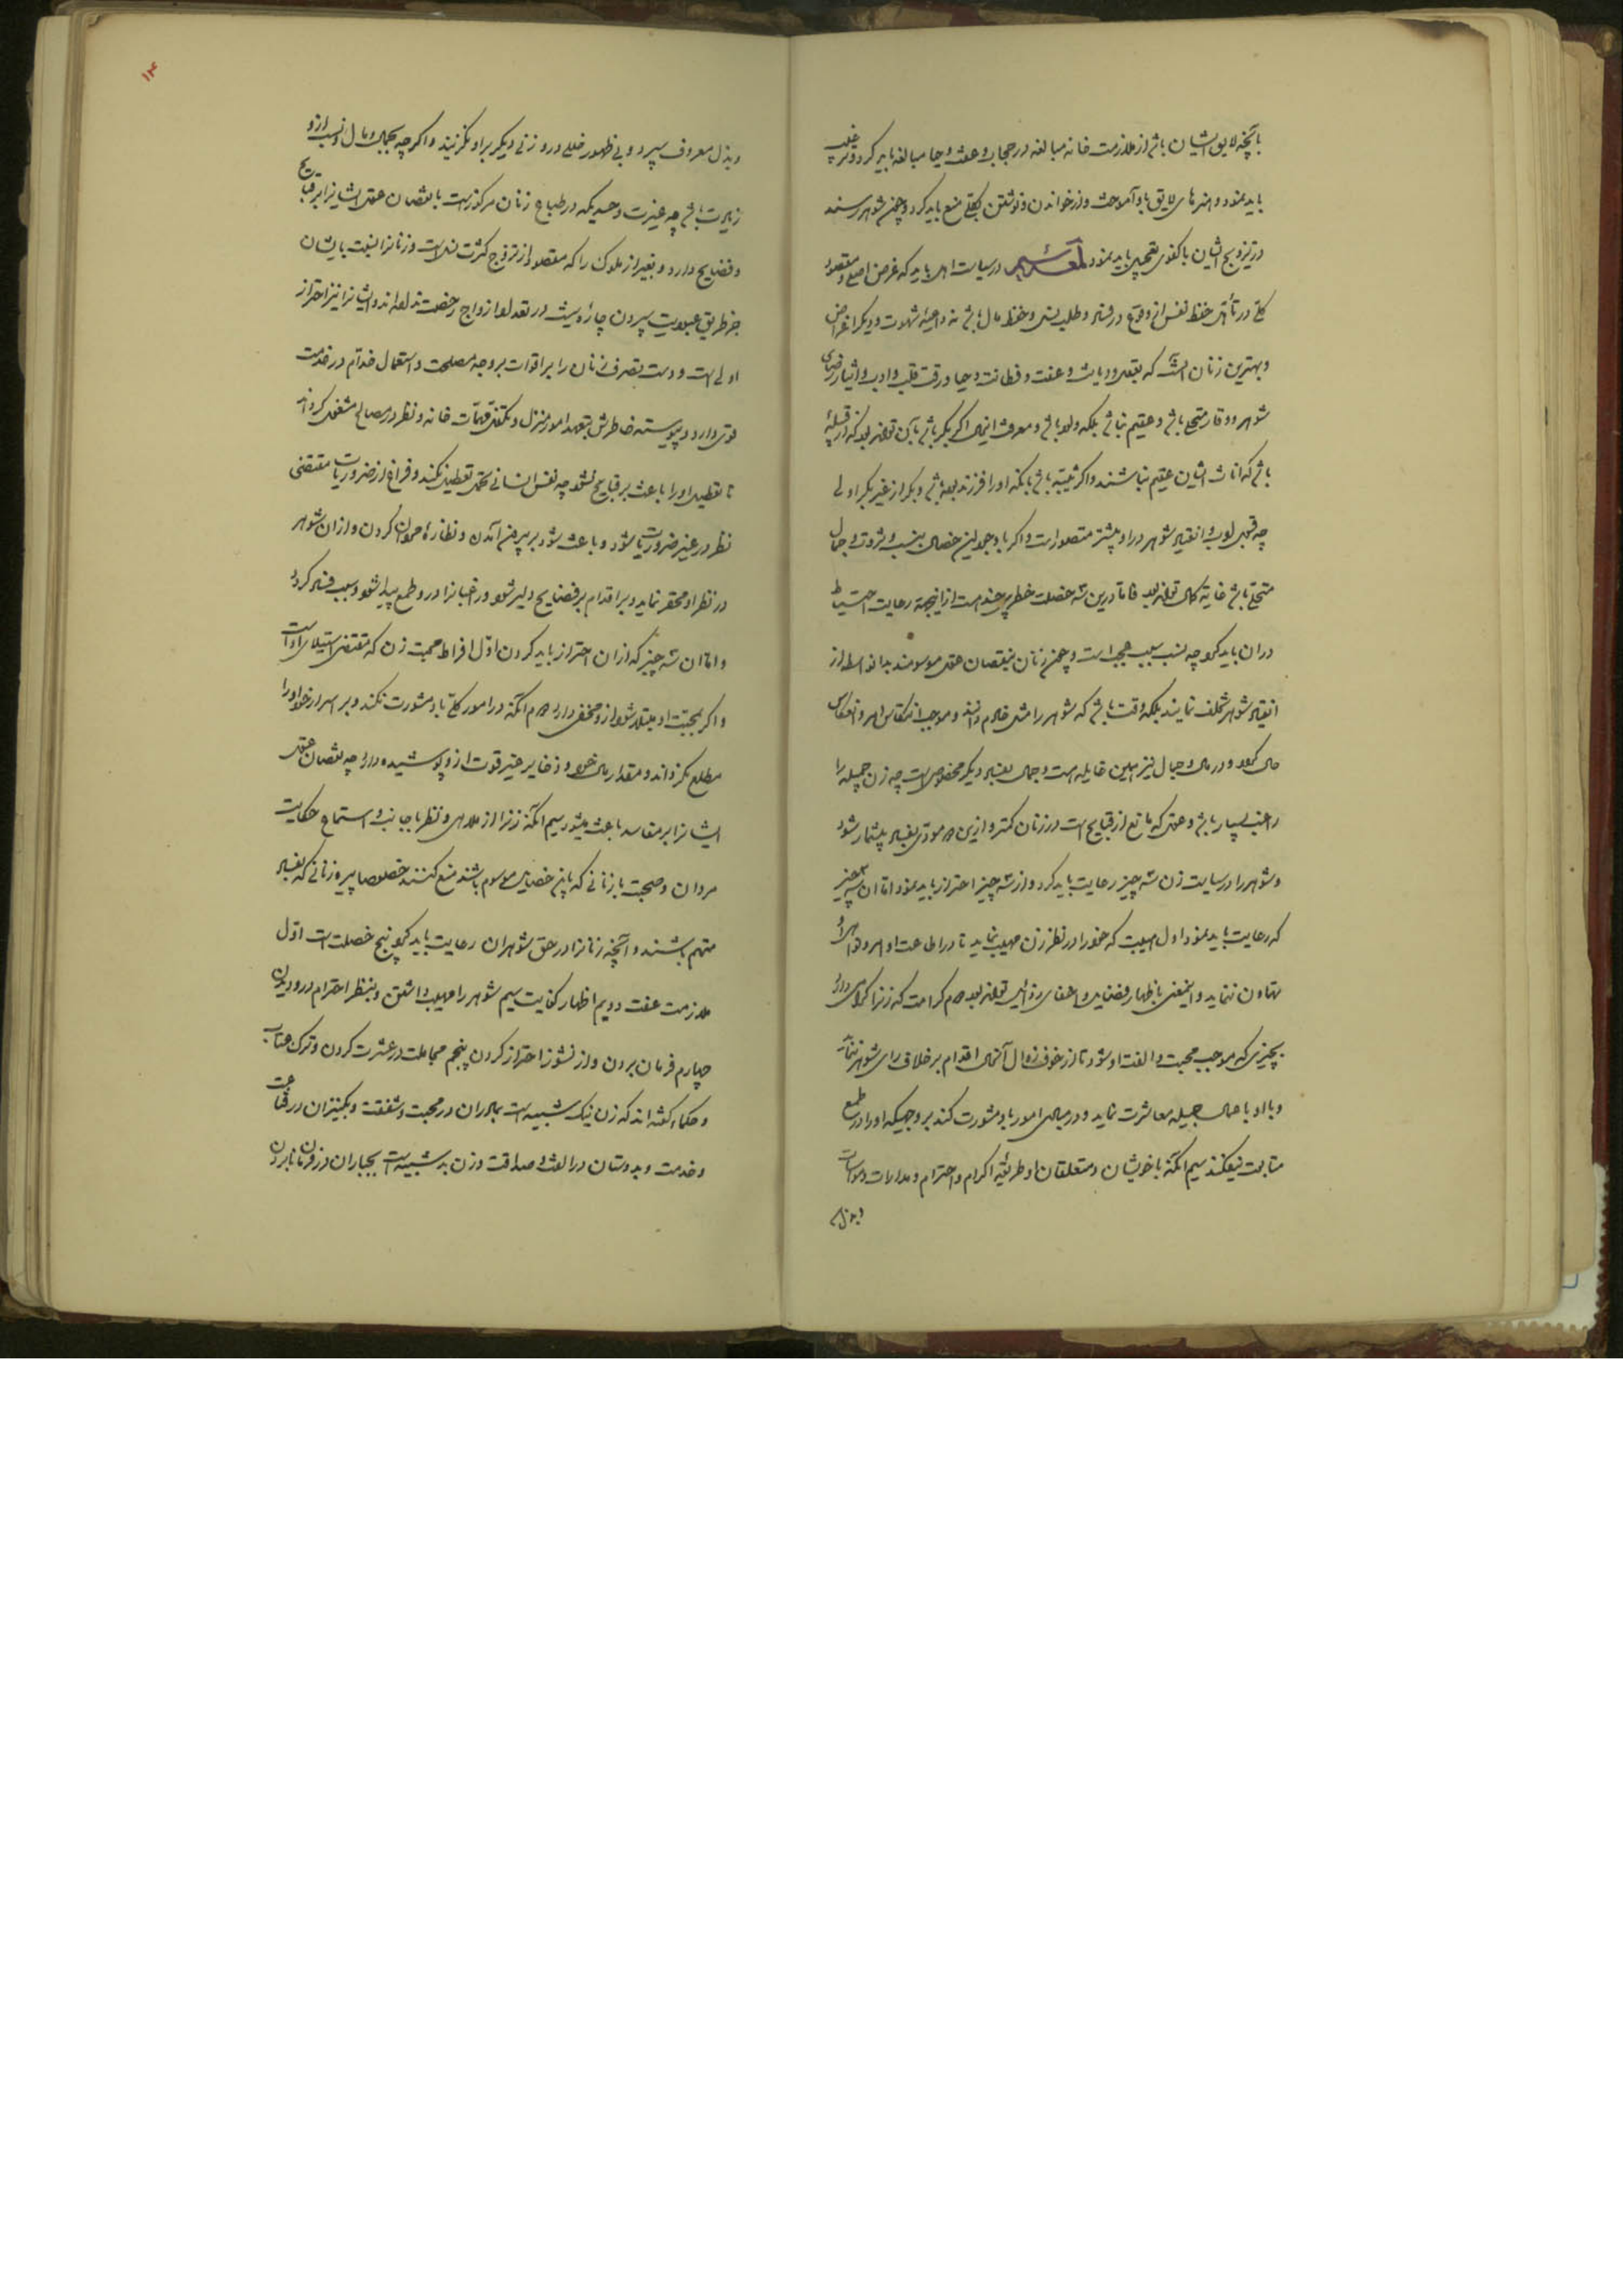 بآنچه لایق ایشان باشد از ملازمت خانه مبالغه در حجاب و عفت و حیا مبالغه باید کرد و ترغیب
باید نمود و هنرهای لایق باو آموخت و از خواندن و نوشتن بکلی منع باید کرد و چون شوهر رسند
در تزویج ایشان با کفوی تعجیل باید نمود در سیاست اهل باید که غرض اصلی و مقصود
کلی در تأهل حفظ نفس از وقوع در فساد و طلب نسل و حفظ مال باشد نه داعیه شهوت و دیگر اغراض
و بهترین زنان آنست که بعقل و دیانت و عفت و فطانت و حیا و رقت قلب و ادب و ایثار رضای
شوهر و وقار متحلی باشد و عقیم نباشد بلکه ولود باشد و معرفت اینحال اگر بکر باشد بآن تواند بود که از قبیله
باشد که اناث ایشان عقیم نباشند و اگر ثیبه باشد بآنکه او را فرزند بوده باشد و بکر از غیر بکر اولی
چه قبول ادب و انقیاد شوهر در او بیشتر متصور است و اگر با وجود این خصال بنسب و ثروت و جمال
متحلی باشد غایة کمال تواند بود فاما درین سه خصلت خطری چند است ازینجهة رعایت احتیاط
در آن باید نمود چه نسب سبب عجب است و چون زنان بنقصان عقل موسومند بدانواسطه از
انقیاد شوهر تخلف نمایند بلکه وقت باشد که شوهر را مثل خادم دانند و موجب انتکاس امر و انعکاس
حال گردد و در مال و جمال نیز همین غایله است و جمال بفساد دیگر مخصوص است چه زن جمیله را
راغب بسیار باشد و عقل که مانع از قبایح است در زنان کمتر و ازین ره مودی بفساد بیشمار شود
و شوهر را در سیاست زن سه چیز رعایت باید کرد و از سه چیز احتراز باید نمود اما آن سه چیز
که رعایت باید نمود اول هیبت که خود را در نظر زن مهیب نماید تا در اطاعت اوامر و نواهی او
تهاون ننماید و اینمعنی باظهار فضایل و اخفای رذایل تواند بود دوم کرامت که زنرا گرامی دارد
بچیزی که موجب محبت و الفت او شود تا از خوف زوال آنحال اقدام بر خلاف رای شوهر ننماید
و با او باجمال جمیله معاشرت نماید و در مبادی امور باو مشورت کند بر وجهیکه او را در طمع
متابعت نیفکند سیم آنکه با خویشان و متعلقان او طریقه اکرام و احترام و مدارات و مواسات
و بذل
۱۴
و بذل معروف سپرد و بی ظهور خللی در او زنی دیگر بر او نگزیند و اگرچه بجمال و مال و نسب از او
زیادت باشد چه غیرت و حسدی که در طباع زنان مرکوز است با نقصان عقل ایشانرا بر قبایح
و فضایح دارد و بغیر از ملوک را که مقصود از تزوج کثرت نسل است و زنانرا نسبت بایشان
جز طریق عبودیت سپردن چاره نیست در تعدد ازواج رخصت نداده‌اند و ایشانرا نیز احتراز
اولی است و دست تصرف زنان را بر اقوات بر وجه مصلحت و استعمال خدام در خدمت
قوی دارد و پیوسته خاطرش بتعهد امور منزل و تکفل مهمات خانه و نظر در مصالح مشغول گرداند
تا تعطیل او را باعث بر قبایح نشود چه نفس انسانی تحمل تعطیل نکند و فراغ از ضروریات مقتضی
نظر در غیر ضروریات شود و باعث شود بر بیرون آمدن و نظاره مردان کردن و ازان شوهر
در نظر او محقر نماید و بر اقدام بر فضایح دلیر شود و راغبانرا در او طمع پیدا شود و سبب فساد گردد
و اما آن سه چیز که ازان احتراز باید کردن اول افراط محبت زن که مقتضی استیلای او است
و اگر بمحبت او مبتلا شود از او مخفی دارد دوم آنکه در امور کلی باو مشورت نکند و بر اسرار خود او را
مطلع نگرداند و مقدار مال خود و ذخایر غیر قوت از او پوشیده دارد چه نقصان عقل
ایشانرا بر مفاسد باعث میشود سیم آنکه زنرا از ملاهی و نظر باجانب و استماع حکایت
مردان و صحبت با زنانی که باین خصایل موسوم باشند منع کنند خصوصا پیره زنانی که بفساد
متهم باشند و آنچه زنانرا در حق شوهران رعایت باید نمود پنج خصلت است اول
ملازمت عفت دویم اظهار کفایت سیم شوهر را مهیب داشتن و بنظر احترام در او دیدن
چهارم فرمان بردن و از نشوز احتراز کردن پنجم مجاملت در عشرت کردن و ترک عتاب
و حکما گفته‌اند که زن نیک شبیه است بمادران در محبت و شفقت و بکنیزان در قناعت
و خدمت و بدوستان در الفت و صداقت و زن بد شبیه است بجباران در فرمان نابردن